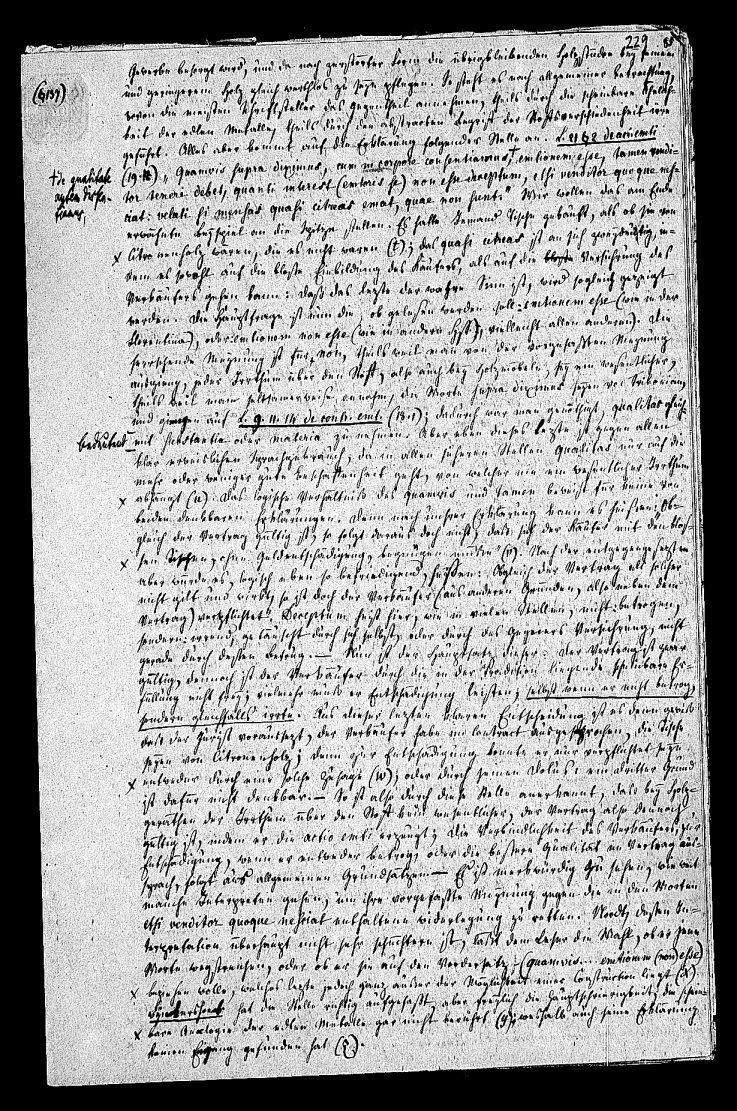 229
Gewerbe besorgt wird, und da nach zerstörter Form die übrigbleibenden Holzstücke bey feinem
(§137)
und geringerem Holz gleich werthlos zu seyn pflegen. So steht es nach allgemeiner Betrachtung,
wovon die meisten Schriftsteller das Gegentheil annehmen, theils durch die scheinbare Aehnlich-
keit der edlen Metalle, theils durch den abstracten Begriff der Stoffverschiedenheit irre
geführt. Alles aber kommt auf die Erklärung folgender Stelle an. L. 21 § 2 de act. emti
(19. 1.) „Quamvis supra diximus, cum in corpore consentiamus, † emtionem esse, tamen vendi-
† de qualitate
autem dissen-
tiamus,
tor teneri debet, quanti interest (emtoris se) non esse deceptum, etsi venditor quoque nes-
ciat: veluti si mensas quasi citreas emat, quae non sunt.“ Wir wollen das am Ende
erwähnte Beyspiel an die Spitze stellen. Es hatte Jemand Tische gekauft, als ob sie von
Citronenholz wären, die es nicht waren (t); das quasi citreas ist an sich zweydeutig, in-
dem es sowohl auf die bloße Einbildung des Käufers, als auf die Versicherung des
Verkäufers gehen kann: daß das letzte der wahre Sinn ist, wird sogleich gezeigt
werden. Die Hauptfrage ist nun die, ob gelesen werden soll: emtionem esse (wie in der
Florentina), oder emtionem non esse (wie in andern Hss.), vielleicht allen anderen). Die
herrschende Meynung ist für non, theils weil man von der vorgefaßten Meynung
ausgieng, jeder Irrthum über den Stoff, also auch bey Holzmöbeln, sey ein wesentlicher,
theils weil man seltsamerweise annahm, die Worte supra diximus seyen von Tribonian,
und giengen auf L. 9. 11. 14 de contr. emt. (18. 1); dadurch war man genöthigt, qualitas gleich-
bedeutend
mit substantia oder materia zu nehmen. Aber eben dieses letzte ist gegen allen
klar erweislichen Sprachgebrauch, da in allen sicheren Stellen qualitas nur auf die
mehr oder weniger gute Beschaffenheit geht, von welcher nie ein wesentlicher Irrthum
abhängt (u). Das logische Verhältniß des quamvis und tamen beweist für keine von
beiden denkbaren Erklärungen. Denn nach unsrer Erklärung kann es heißen: Ob-
gleich der Vertrag gültig ist, so folgt daraus doch nicht, daß sich der Käufer mit den bloß-
sen Tischen, ohne Geldentschädigung, begnügen müßte (v). Nach der entgegengesetzten
aber würde es, logisch eben so befriedigend, heißen: Obgleich der Vertrag als solcher
nicht gilt und wirkt, so ist doch der Verkäufer (aus anderen Gründen, also neben dem
Vertrag) verpflichtet. Deceptum heißt hier, wie in vielen Stellen, nicht: betrogen,
sondern: irrend, getäuscht durch sich selbst, oder durch des Gegners Versicherung, nicht
gerade durch dessen Betrug. — Nun ist der Hauptsatz dieser: der Vertrag ist zwar
gültig, dennoch ist der Verkäufer durch die in der Tradition liegende scheinbare Er-
füllung nicht frey, vielmehr muß er Entschädigung leisten, selbst wenn er nicht betrog,
sondern gleichfalls irrte. Aus dieser letzten klaren Entscheidung ist es denn gewiß
daß der Jurist voraussetzt, der Verkäufer habe im Contract ausgesprochen, die Tische
seyen von Citronenholz; denn zur Entschädigung konnte er nur verpflichtet seyn
entweder durch eine solche Zusage (w); oder durch seinen Dolus: ein dritter Grund
ist dafür nicht denkbar. — So ist also durch diese Stelle anerkannt, daß bey Holz-
geräthen der Irrthum über den Stoff kein wesentlicher, der Vertrag also dennoch
gültig ist, indem er die actio emti erzeugt; die Verbindlichkeit des Verkäufers, zur
Entschädigung, wenn er entweder betrog, oder die bessere Qualität im Vertrag aus-
sprach, folgt aus allgemeinen Grundsätzen — Es ist merkwürdig zu sehen, wie weit
manche Interpreten gehen, um ihre vorgefaßte Meynung gegen die in den Worten
etsi venditor quoque nesciat enthaltene Widerlegung zu retten. Noodt, dessen In-
terpretation überhaupt nicht sehr schüchtern ist, läßt dem Leser die Wahl, ob er jene
Worte wegstreichen, oder ob er sie auf den Vordersatz (quamvis... emtionem (non) esse)
beziehen wolle, welches letzte jedoch ganz außer der Möglichkeit einer Construction liegt (x)
Bynkershoek hat die Stelle richtig aufgefaßt, aber freylich die Hauptschwierigkeit, die schein-
bare Analogie der edlen Metalle gar nicht berührt (y), weshalb auch seine Erklärung
keinen Eingang gefunden hat (z).